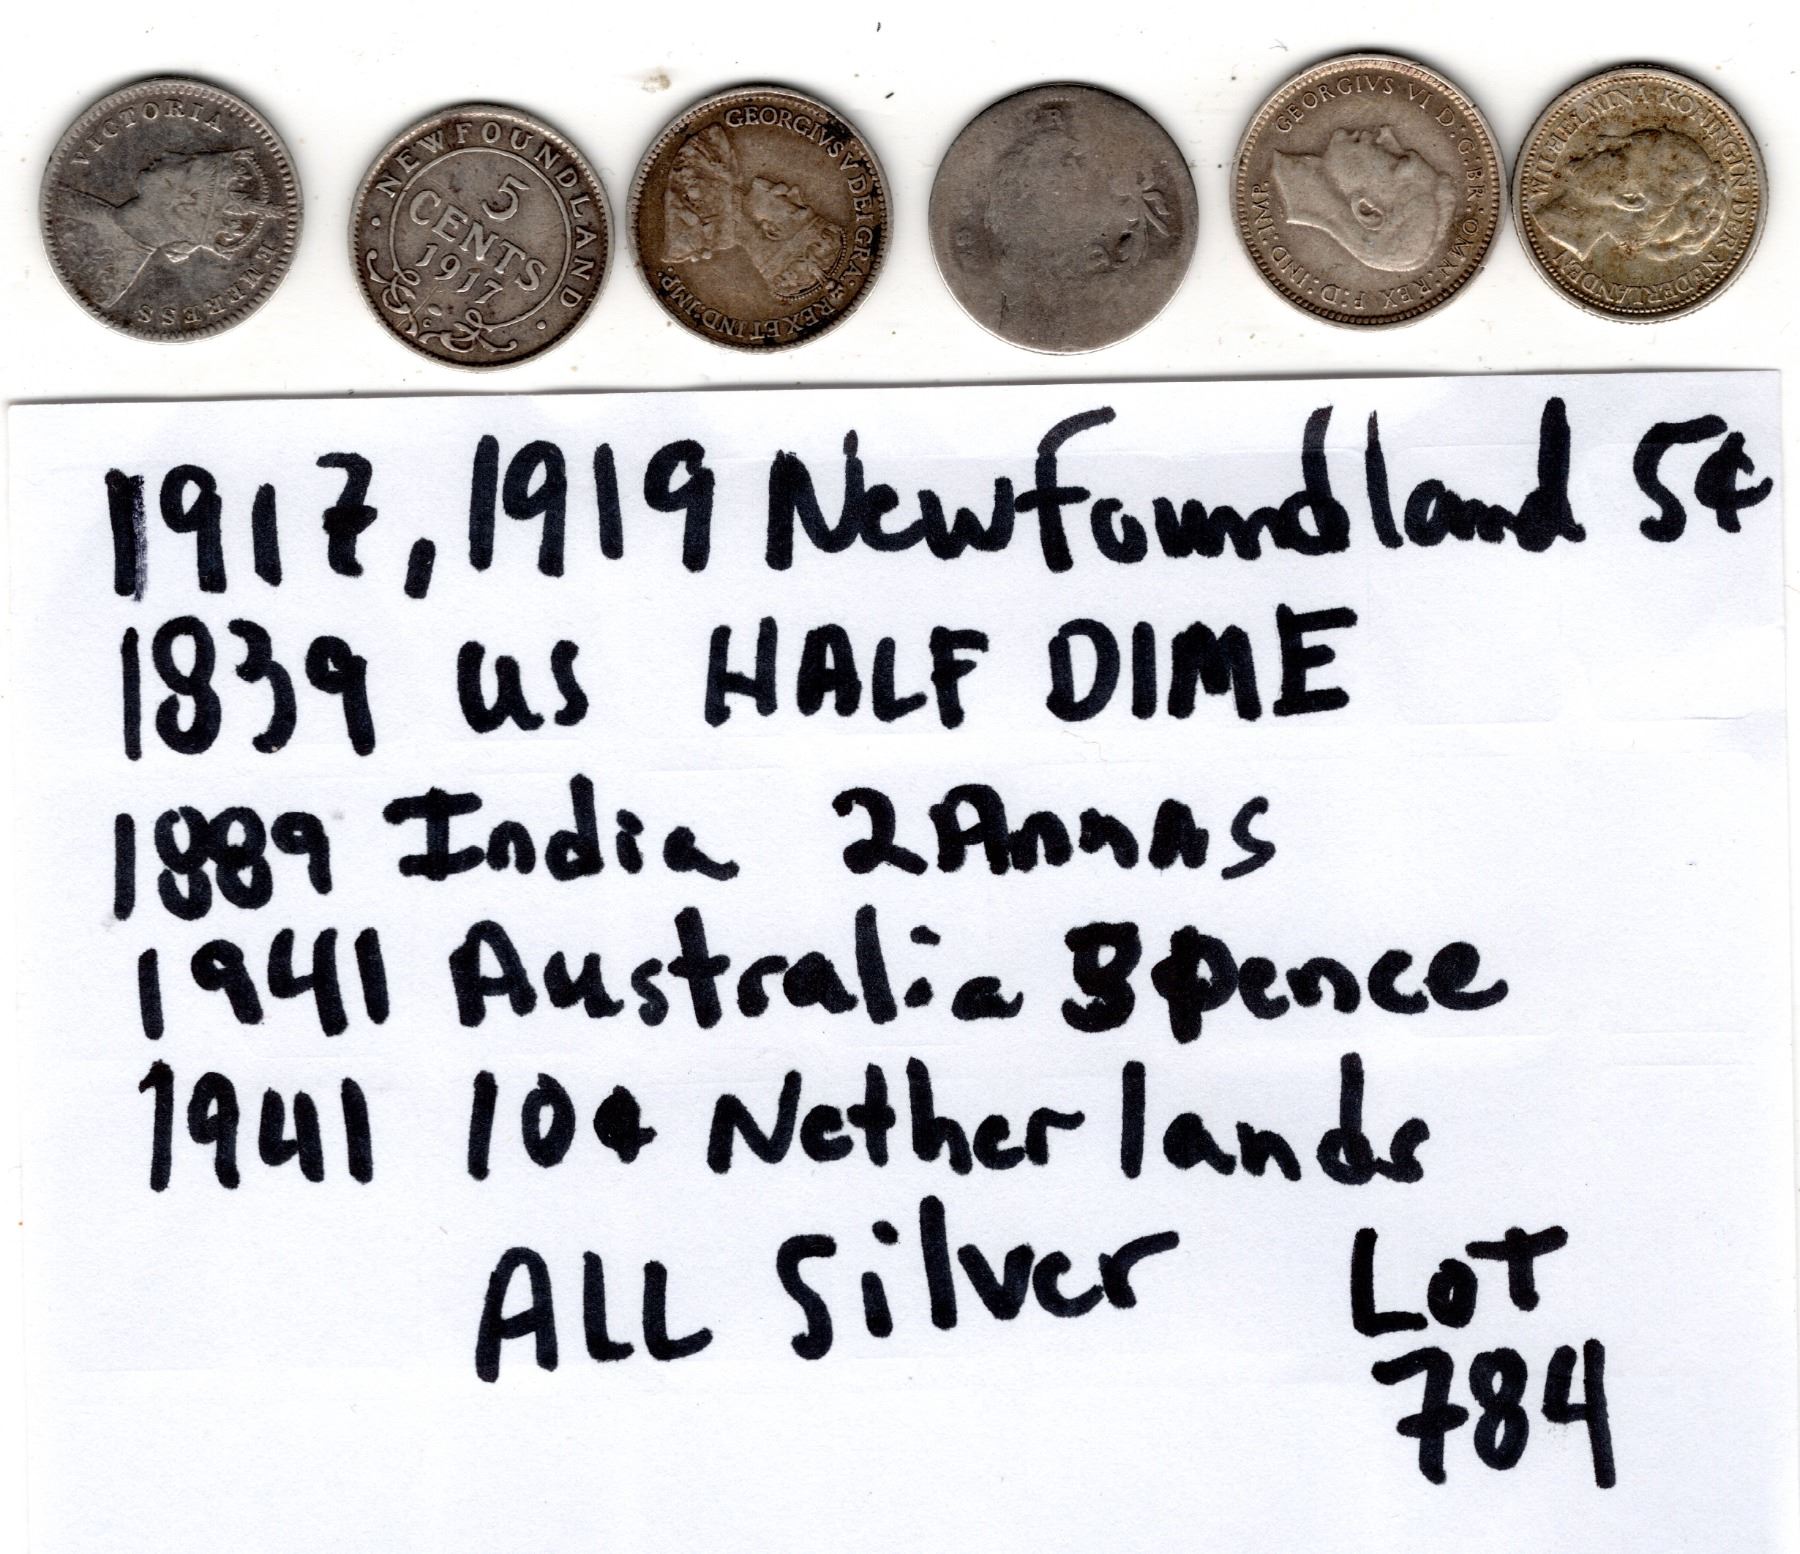 VICTORIA EMPRESS
NEWFOUNDLAND
5
CENTS
1917
GEORGIVS V DEI GRA: REX ET IND: IMP:
GEORGIVS VI D:G:BR:OMN:REX F:D:IND:IMP.
WILHELMINA KONINGIN DER NEDERLANDEN
1917, 1919 Newfoundland 5¢
1839 US HALF DIME
1889 India 2 Annas
1941 Australia 3 pence
1941 10¢ Netherlands
ALL Silver
Lot
784